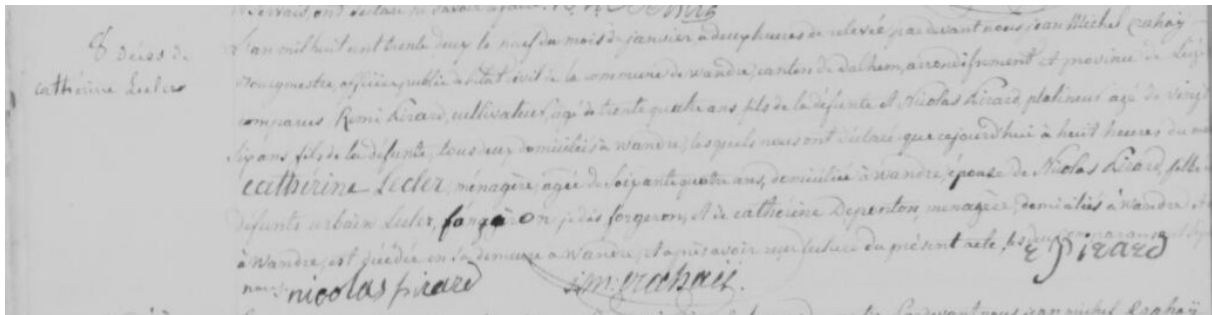 8 décès de
cathérine Lecler
L'an mil huit cent trente deux le neuf du mois de janvier à deux heures de relevée, par devant nous jean Michel crahaÿ
Bourgmestre, officier public de l'état civil de la commune de wandre, canton de dalhem, arrondissement et province de Liège
comparus Remi Pirard, cultivateur, agé de trente quatre ans fils de la défunte et Nicolas Pirard, platineur agé de vingt
six ans, fils de la défunte, tous deux domiciliés à wandre, lesquels nous ont déclaré que cejourd'hui à huit heures du
cathérine Lecler, ménagère, agée de soixante quatre ans, domiciliée à wandre, épouse de Nicolas Pirard, fille
défunts urbain Lecler, forgeron, je dis forgeron, et de cathérine Deponton, ménagère, domiciliés à wandre
à wandre, est décédée en sa demeure à wandre, et après avoir reçu lecture du présent acte, les deux comparans ont
nous nicolas pirard jm. crahaÿ. r pirard
pardevant nous jean michel Crahaÿ